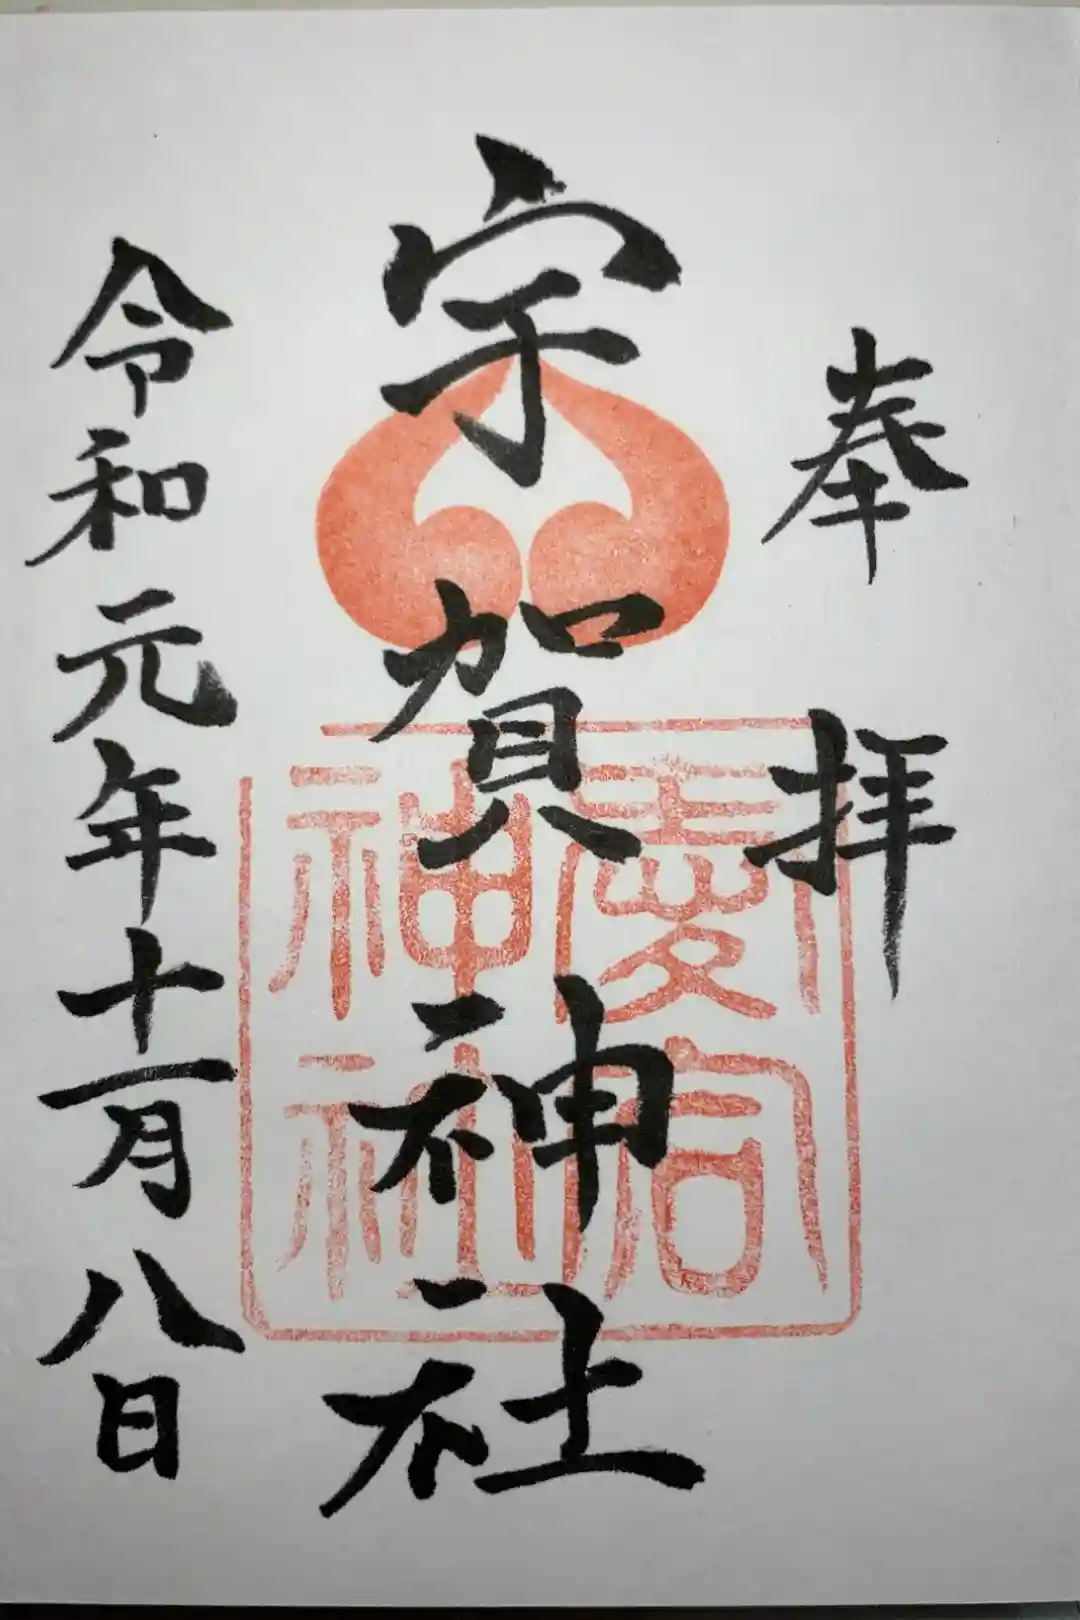 奉拝
宇賀神社
愛宕
神社
令和元年十一月八日